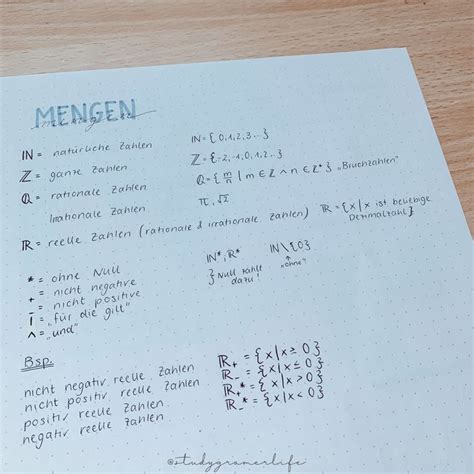 MENGEN
IN = natürliche Zahlen IN = {0,1,2,3...}
ℤ = ganze Zahlen ℤ = {-2,-1,0,1,2...}
ℚ = rationale Zahlen ℚ = {m/n | m ∈ ℤ ∧ n ∈ ℤ*} „Bruchzahlen"
Irrationale Zahlen π, √2
ℝ = reelle Zahlen (rationale & irrationale Zahlen) ℝ = {x|x ist beliebige
Dezimalzahl}
* = ohne Null IN*, ℝ* IN\{0}
+ = nicht negative } Null zählt „ohne"
- = nicht positive dazu!
| = „für die gilt"
∧ = „und"
Bsp.
nicht negativ reelle Zahlen ℝ+ = {x|x ≥ 0}
nicht positiv reelle Zahlen ℝ- = {x|x ≤ 0}
positiv reelle Zahlen ℝ+* = {x|x > 0}
negativ reelle Zahlen ℝ-* = {x|x < 0}
@studygramerlife